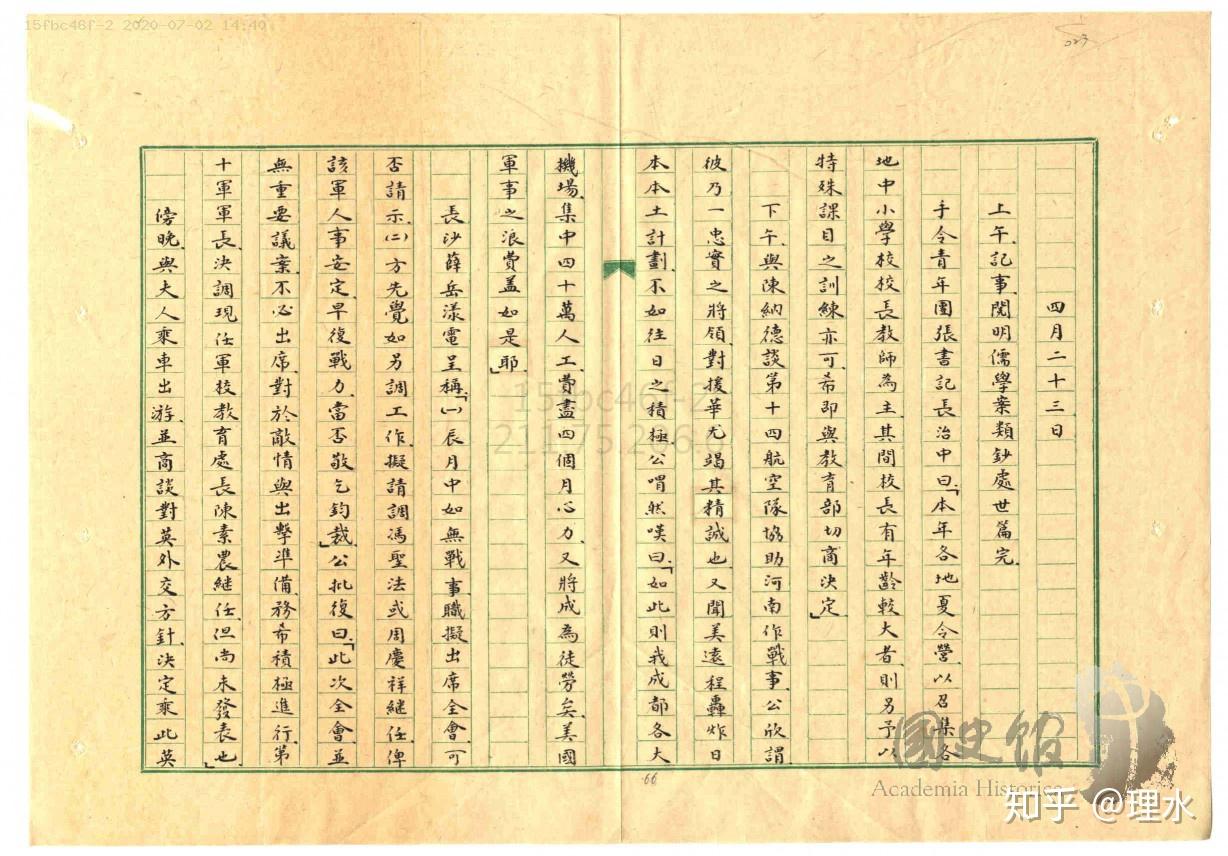 15fbc46f-2 2020-07-02 14:40
023
四月二十三日
上午、記事、閱明儒學案類鈔處世篇完、
手令青年團張書記長治中曰、「本年各地夏令營以召集各
地中小學校校長教師為主、其間校長有年齡較大者、則另予以
特殊課目之訓練亦可、希即與教育部切商決定」
下午、與陳納德談第十四航空隊協助河南作戰事、公欣謂
彼乃一忠實之將領、對援華尤竭其精誠也、又聞美遠程轟炸日
本本土計劃、不如往日之積極、公喟然嘆曰、「如此則我成都各大
機場、集中四十萬人工、費盡四個月心力、又將成為徒勞矣、美國
軍事之浪費、蓋如是耶」
長沙薛岳漾電呈稱、「(一)辰月中如無戰事、職擬出席全會、可
否請示、(二)方先覺如另調工作、擬請調馮聖法或周慶祥繼任、俾
該軍人事安定、早復戰力、當否敬乞鈞裁」公批復曰、「此次全會並
無重要議案、不必出席、對於敵情與出擊準備、務希積極進行、第
十軍軍長、決調現任軍校教育處長陳素農繼任、但尚未發表也」
傍晚、與夫人乘車出游、並商談對英外交方針、決定乘此英
66
15fbc46f-2
國史館
Academia Historica
知乎 @理水